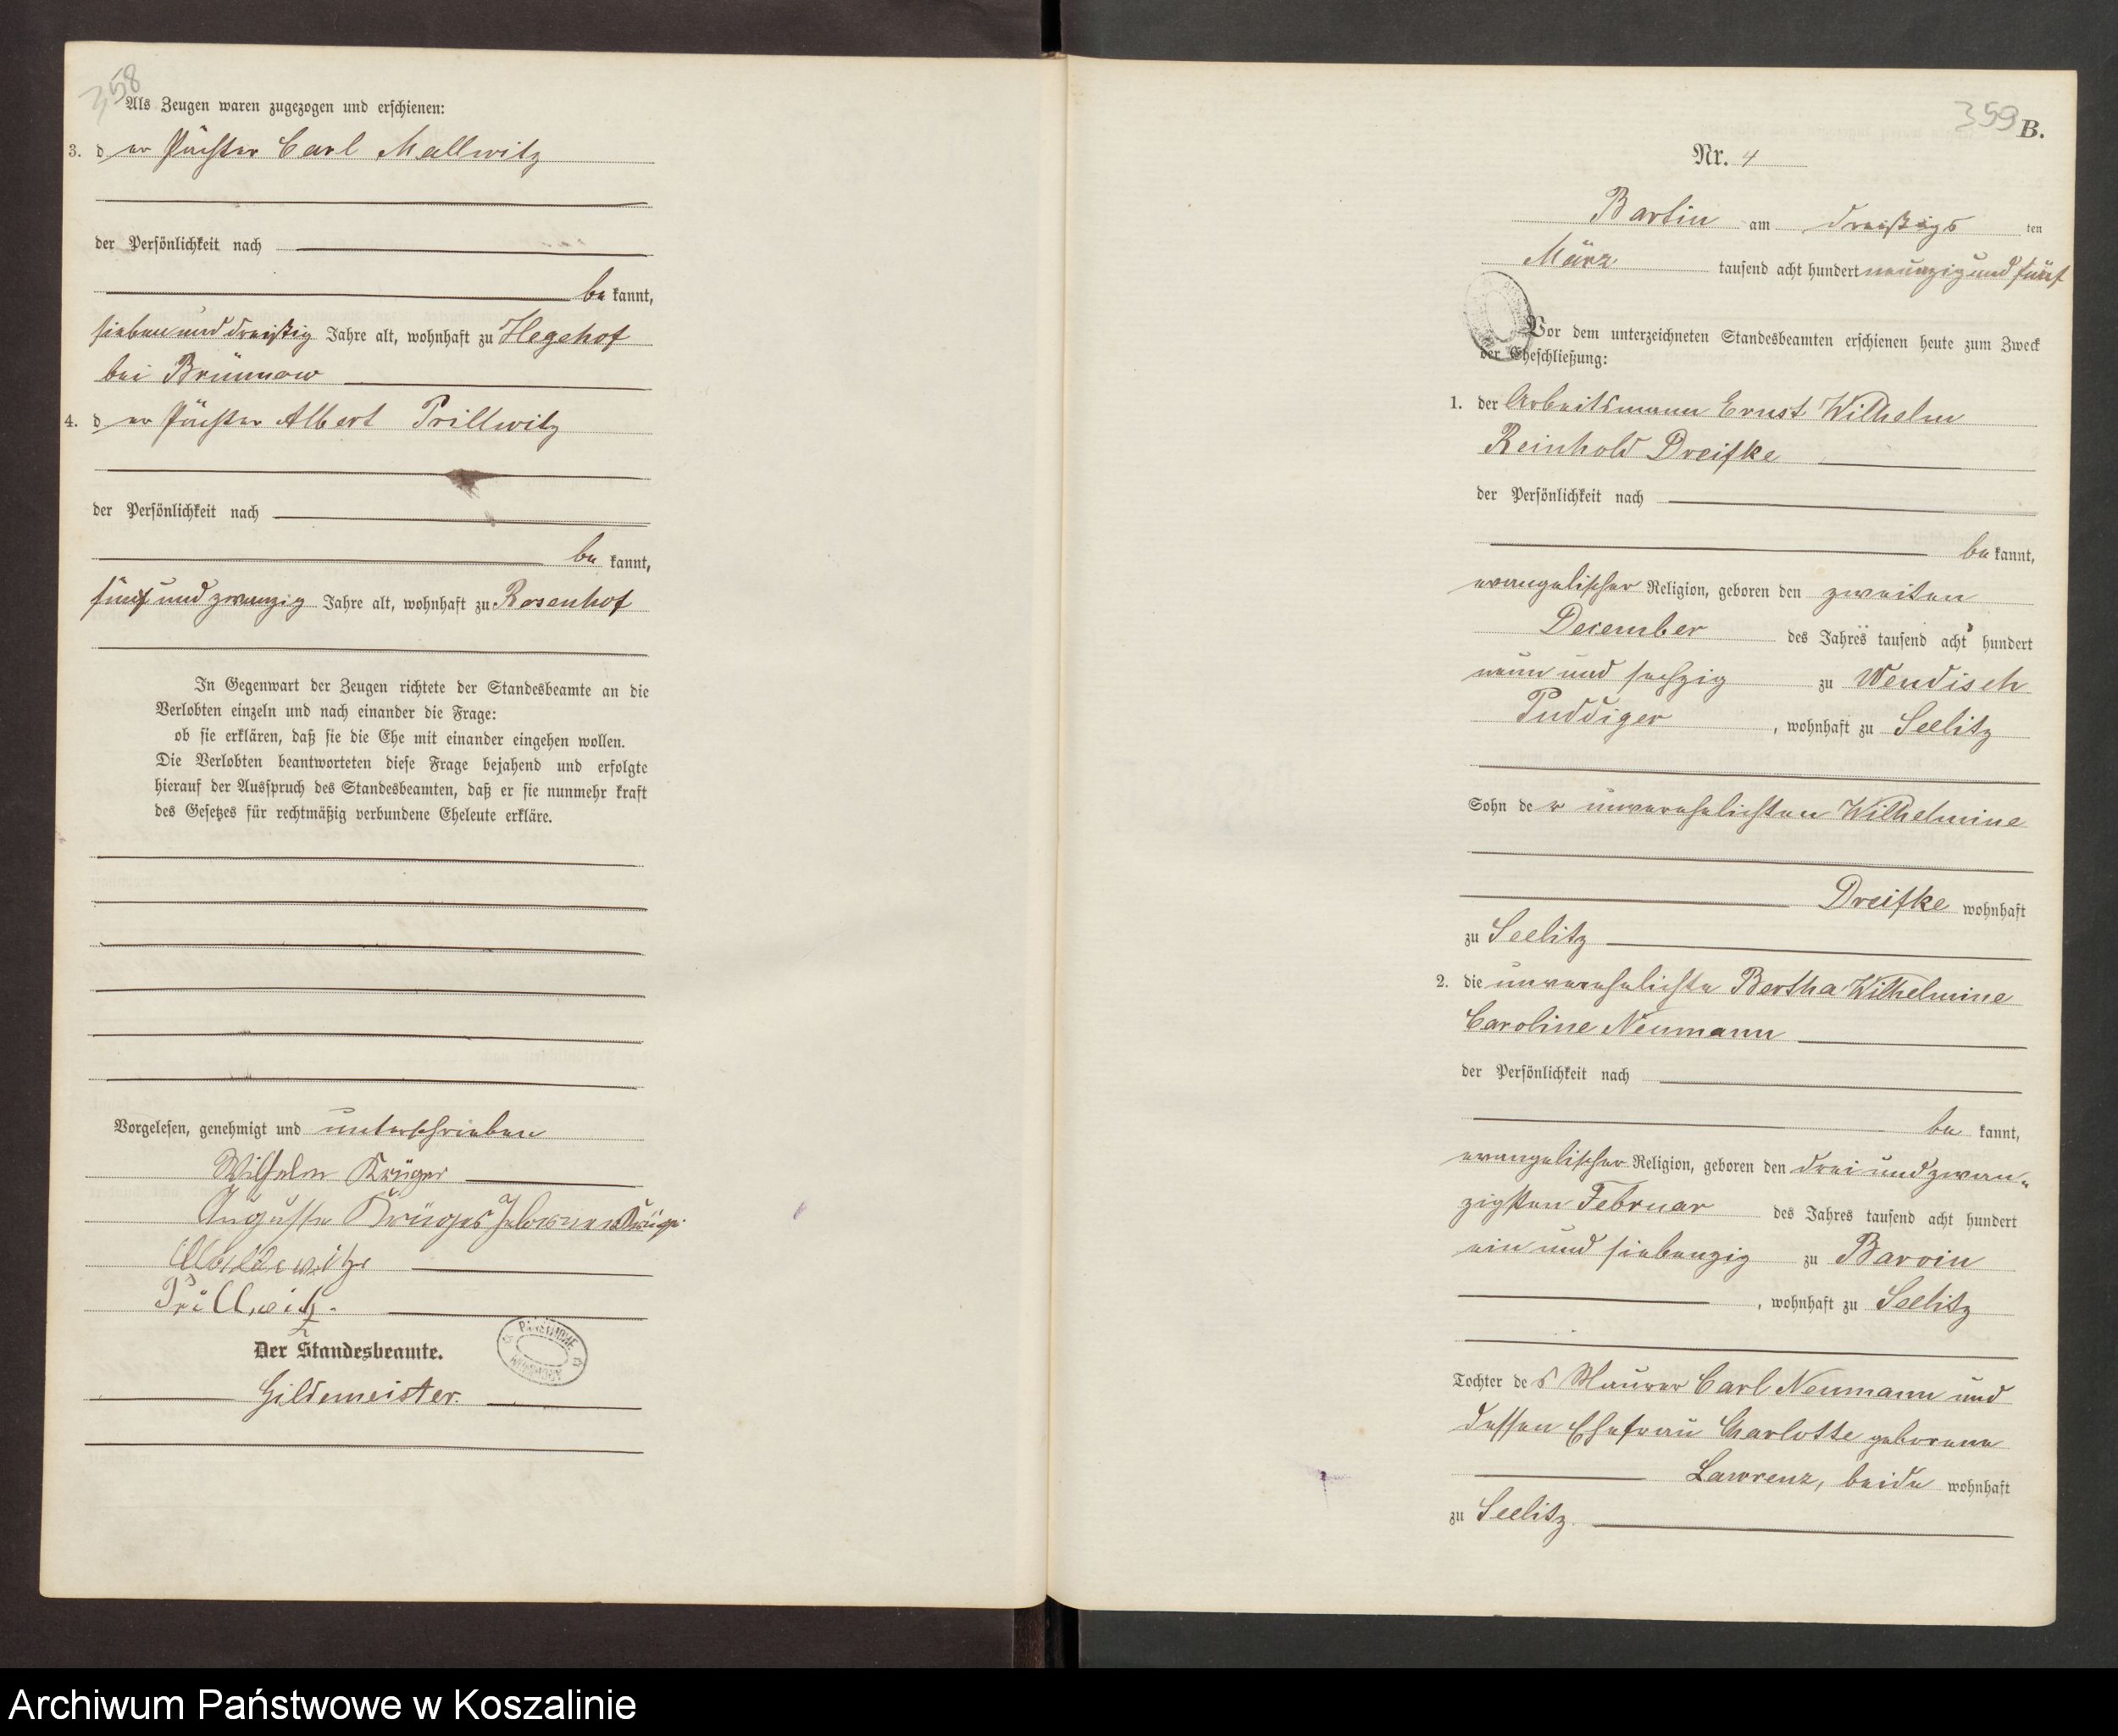 358
Als Zeugen waren zugezogen und erschienen:
3. der Pächter Carl Mallwitz
der Persönlichkeit nach
bekannt,
sieben und dreißig Jahre alt, wohnhaft zu Hegehof
bei Brünnow
4. der Pächter Albert Prillwitz
der Persönlichkeit nach
bekannt,
fünf und zwanzig Jahre alt, wohnhaft zu Rosenhof
In Gegenwart der Zeugen richtete der Standesbeamte an die
Verlobten einzeln und nach einander die Frage:
ob sie erklären, daß sie die Ehe mit einander eingehen wollen.
Die Verlobten beantworteten diese Frage bejahend und erfolgte
hierauf der Ausspruch des Standesbeamten, daß er sie nunmehr kraft
des Gesetzes für rechtmäßig verbundene Eheleute erkläre.
Vorgelesen, genehmigt und unterschrieben
Wilhelm Krüger
Auguste Krüger geborenen Krüger
Prillwitz.
Der Standesbeamte.
Gildemeister.
359
B.
Nr. 4
Bartin am dreißigsten
März tausend acht hundert neunzig und fünf
Vor dem unterzeichneten Standesbeamten erschienen heute zum Zweck
der Eheschließung:
1. der Arbeitsmann Ernst Wilhelm
Reinhold Dreifke
der Persönlichkeit nach
bekannt,
evangelischer Religion, geboren den zweiten
December des Jahres tausend acht hundert
neun und sechzig zu Wendisch
Puddiger, wohnhaft zu Seelitz
Sohn der unverehelichten Wilhelmine
Dreifke wohnhaft
zu Seelitz
2. die unverehelichte Bertha Wilhelmine
Caroline Neumann
der Persönlichkeit nach
bekannt,
evangelischer Religion, geboren den drei und zwan-
zigsten Februar des Jahres tausend acht hundert
ein und siebenzig zu Barvin
, wohnhaft zu Seelitz
Tochter des Maurer Carl Neumann und
dessen Ehefrau Charlotte geborene
Lawrenz, beide wohnhaft
zu Seelitz.
Archiwum Państwowe w Koszalinie